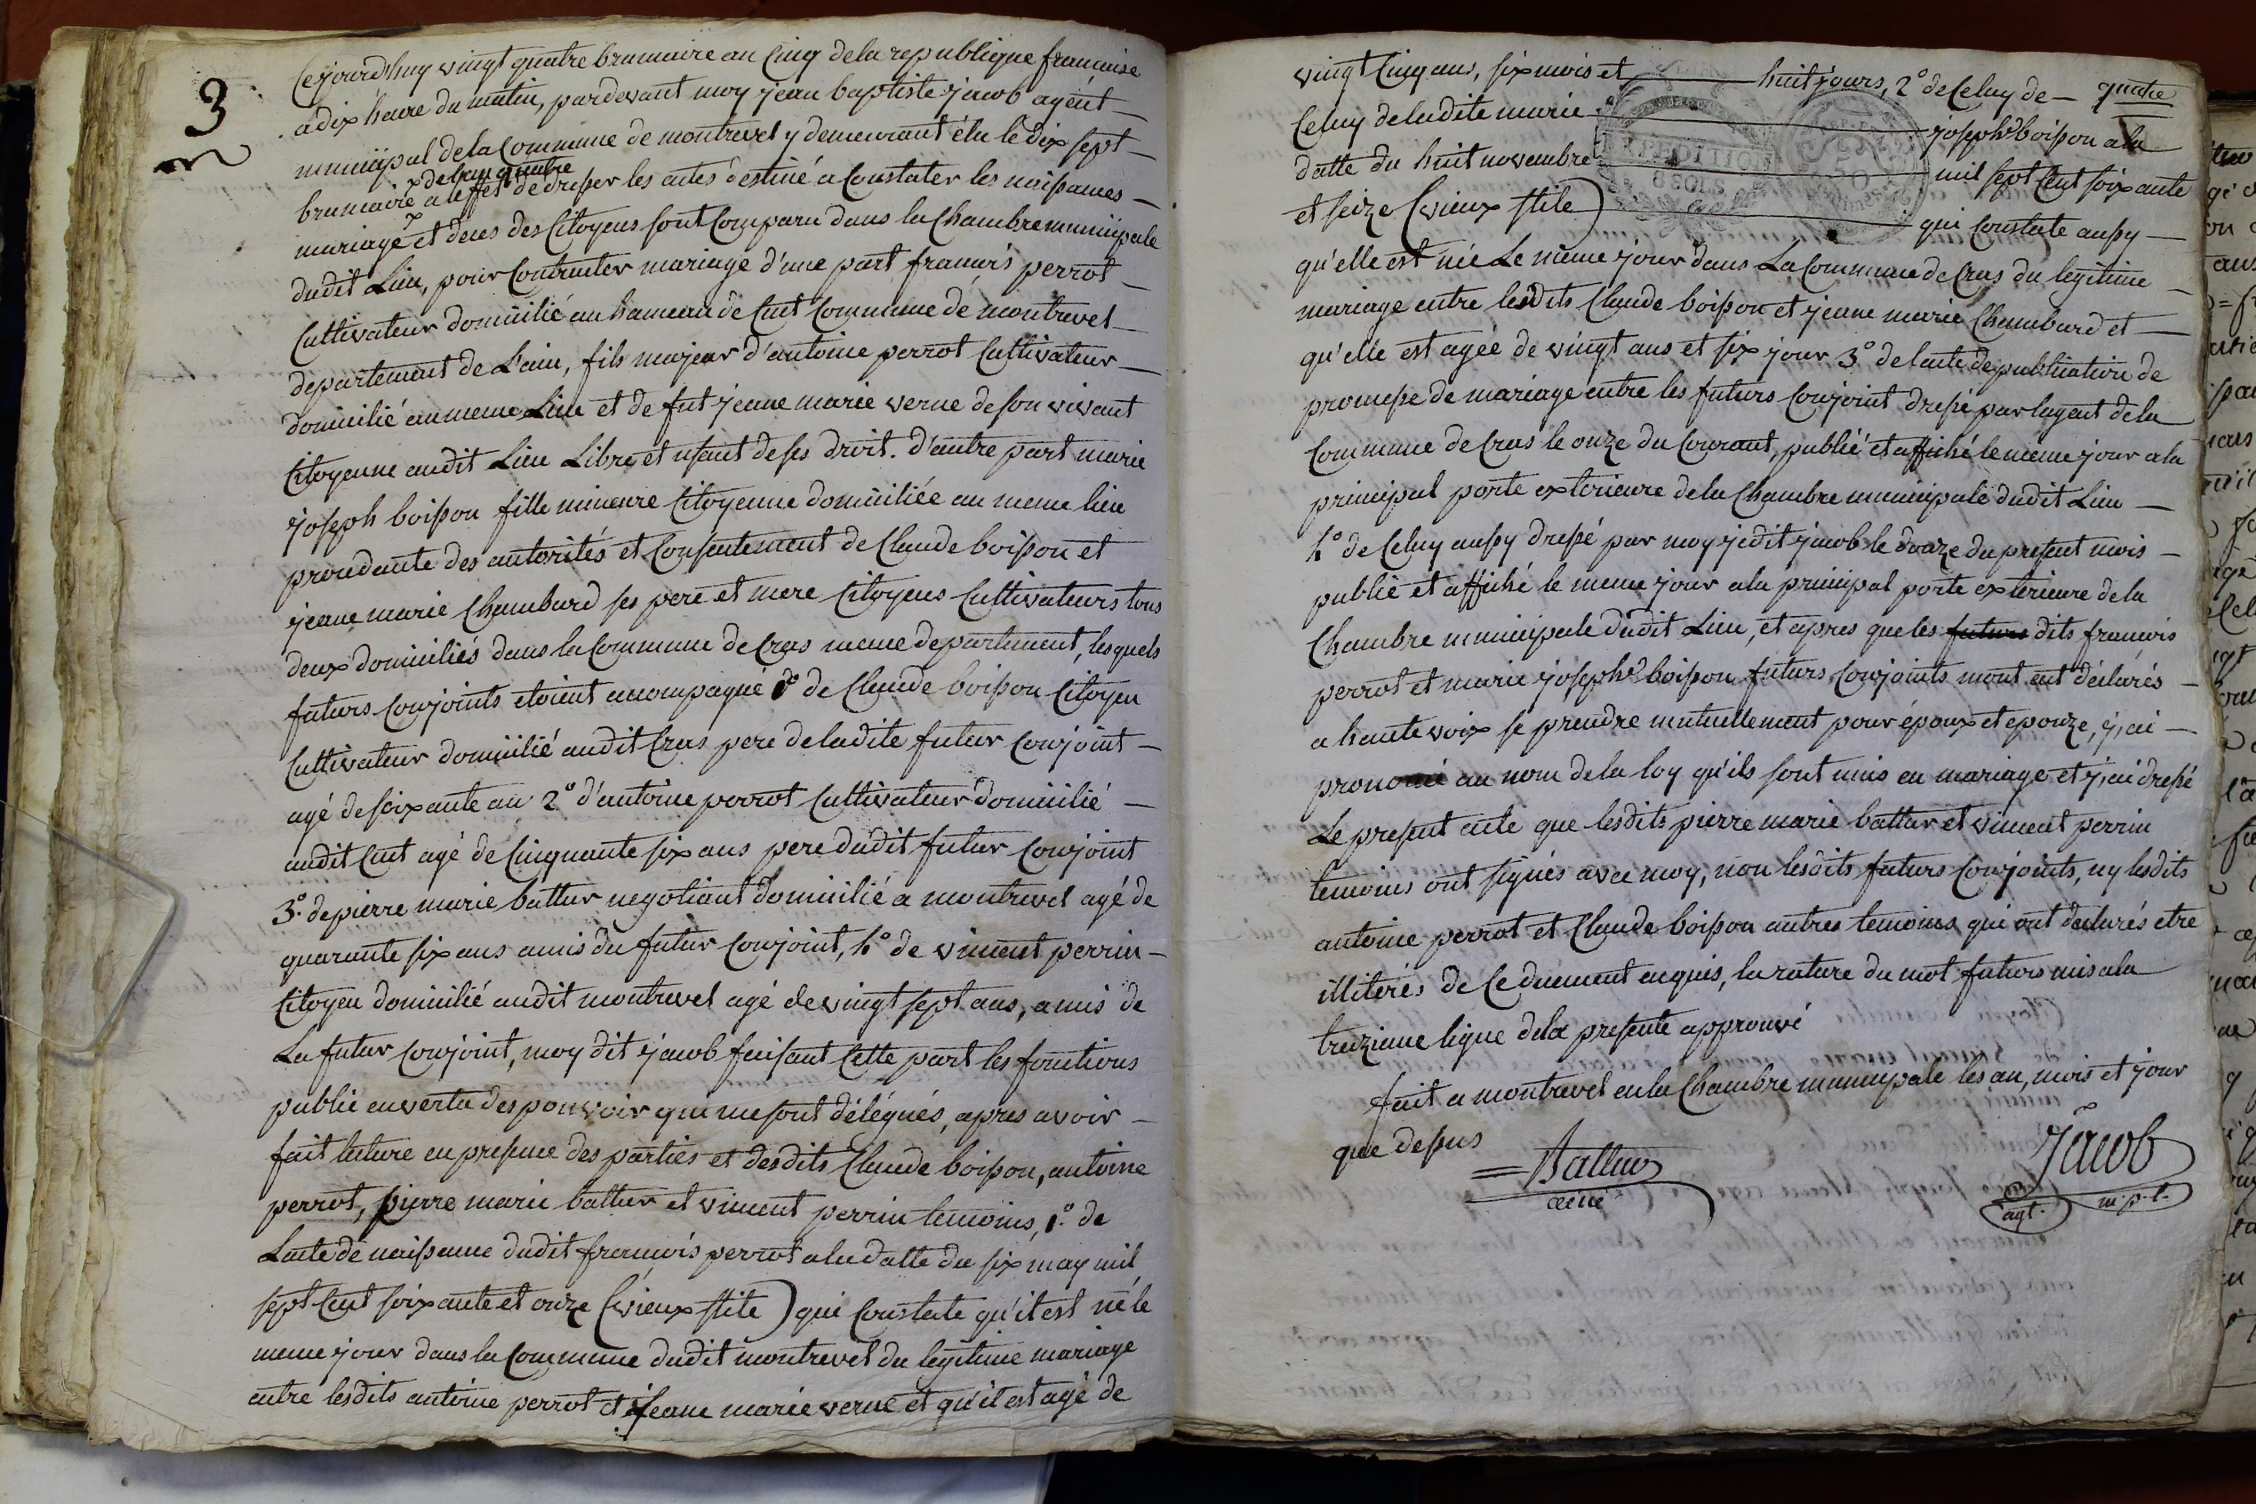 3
Cejourdhuy vingt quatre brumaire an Cinq de la republique francaise
a dix heure du matin, pardevant moy jean baptiste jacob agent
municipal de la Commune de montrevel y demeurant élu le dix sept
x de l'an quatre
brumaire a leffet de dresser les actes destiné a Constater les naissances
mariage et deces des Citoyens sont Comparu dans la Chambre municipale
dudit Lieu, pour Contracter mariage d'une part francois perrot
Cultivateur domicilié au hameau de Cuet Commune de montrevel
departement de L'ain, fils majeur d'antoine perrot Cultivateur
domicilié au meme Lieu et de fut jeane marie verne de son vivant
Citoyenne audit Lieu Libre et usant de ses droit. d'autre part marie
joseph boisson fille mineure Citoyenne domiciliée au meme lieu
procedante des autorités et Consentement de Claude boisson et
jeane marie Chambard ses pere et mere Citoyens Cultivateurs tous
deux domiciliés dans la Commune de Cras meme departement, lesquels
futurs Conjoints etoient accompagné 1º de Claude boisson Citoyen
Cultivateur domicilié audit Cras pere de ladite futur Conjoint
agé de soixante an 2º d'antoine perrot Cultivateur domicilié
audit Cuet agé de Cinquante six ans pere dudit futur Conjoint
3º. de pierre marie battur negotiant domicilié a montrevel agé de
quarante six ans amis du futur Conjoint, 4º de vincent perrin
Citoyen domicilié audit montrevel agé de vingt sept ans, amis de
La futur Conjoint, moy dit jacob faisant Cette part les fonctions
public en vertu des pouvoir qui me sont délégués, apres avoir
fait lecture en presence des parties et desdits Claude boisson, antoine
perrot, pierre marie battur et vincent perrin temoins, 1º. de
Lacte de naissance dudit francois perrot a la datte du six may mil
sept Cent soixante et onze (vieux stile) qui Constate qu'il est né le
meme jour dans la Commune dudit montrevel du legitime mariage
entre lesdits antoine perrot et jeane marie verne et qu'il est agé de
quatre
vingt Cinq ans, six mois et huit jours, 2º de Celuy de
Celuy de ladite marie josephe boisson a la
datte du huit novembre mil sept Cent soixante
et seize (vieux stile) qui Constate aussy
qu'elle est née Le même jour dans La Commune de Cras du legitime
mariage entre lesdits Claude boisson et jeane marie Chambard et
qu'elle est agée de vingt ans et six jour 3º de lacte de publication de
promesse de mariage entre les futurs Conjoint dressé par lagent de la
Commune de Cras le onze du Courant, publié et affiché le meme jour a la
principal porte exterieure de la Chambre municipale dudit Lieu
4º de Celuy aussy dressé par moy jedit jacob le douze du present mois
publié et affiché le meme jour a la principal porte exterieure de la
Chambre municipale dudit Lieu, et apres que les futurs dits francois
perrot et marie josephe boisson futurs Conjoints mont ent déclarés
a haute voix se prendre mutuellement pour époux et epouze, j'ai
prononcé au nom de la loy qu'ils sont unis en mariage et j'ai dressé
Le present acte que lesdits pierre marie battur et vincent perrin
temoins ont signés avec moy, non lesdits futurs Conjoints, ny lesdits
antoine perrot et Claude boisson autres temoins qui ont declarés etre
illiterés de Ce duement enquis, la rature du mot futurs mis a la
treizieme ligne dela presente approuvé
fait a montrevel en la Chambre municipale les an, mois et jour
que dessus
Battur Jacob
ainé agt. m.p.l.